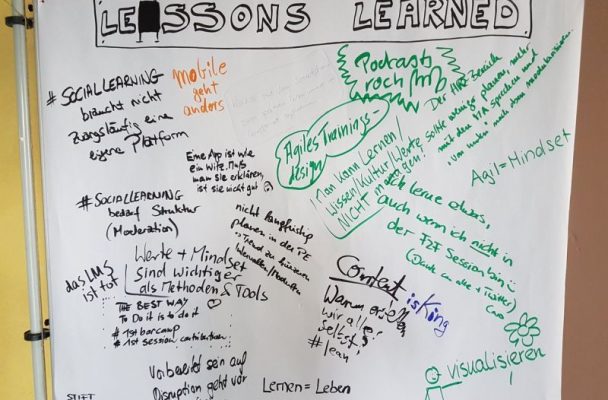 LESSONS LEARNED
#SOCIALLEARNING
braucht nicht
zwangsläufig eine
eigene Plattform
mobile
geht
anders
Podcasts
rock
Der
Bereich
sollte weniger planen, mehr
mit den MA sprechen und
von unten nach oben
Agiles Trainings-
design
Eine App ist wie
ein Witz. Muss
man sie erklären,
ist sie nicht gut
Man kann Lernen/
Wissen/Kultur/Werte
NICHT managen!
Agil = Mindset
#SOCIALLEARNING
bedarf Struktur
(Moderation)
nicht langfristig
planen in der PE
Trend zu kürzeren
Intervallen
Ich lerne etwas,
auch wenn ich nicht in
der F2F Session bin
(Danke an alle + Twitter)
Werte + Mindset
sind wichtiger
als Methoden & Tools
das LMS
ist tot
THE BEST WAY
To Do it is to do it
#1st barcamp
#1st session contribution
Content is King
Warum
wir alle
selbst?
#lean
visualisieren
!
Vorbereitet sein auf
Disruption geht vor
Lernen = Leben
STIFT